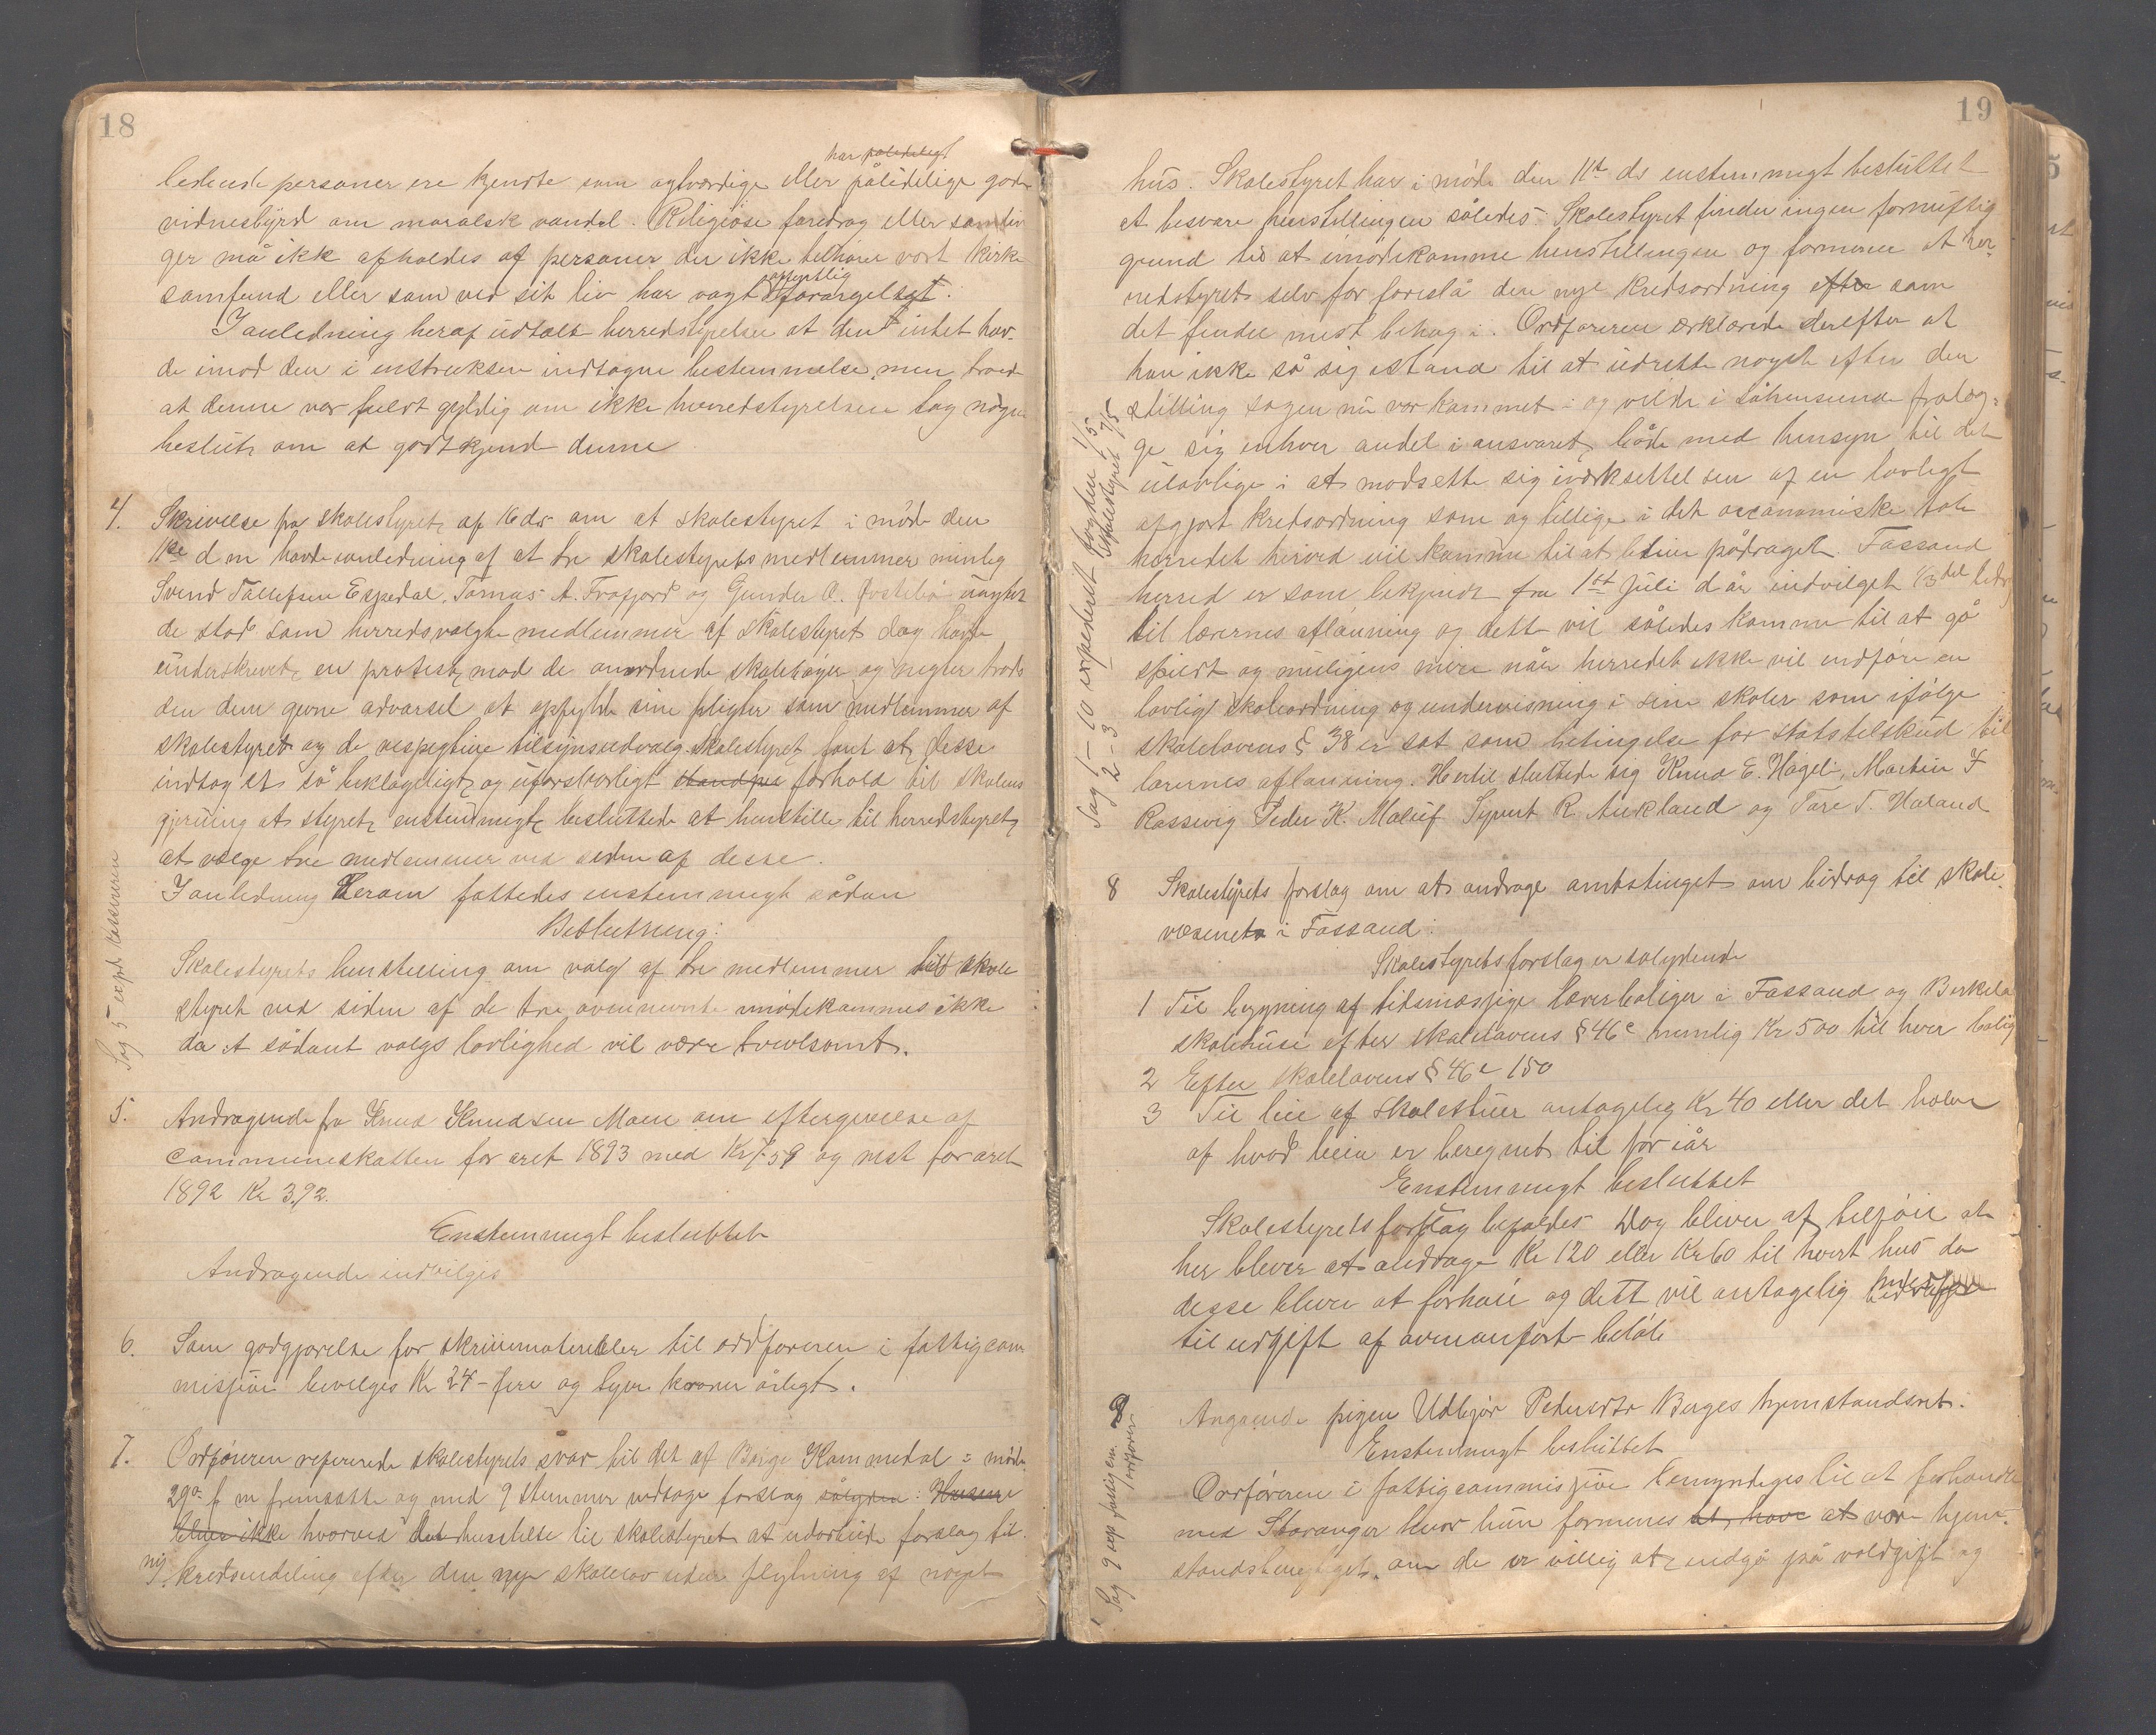 18
har pålideligt
ledende personer ere kjendte som agtværdige eller pålidelige gode
vidnesbyrd om moralsk vandel. Religiøse foredrag eller samlin
ger må ikke afholdes af personer der ikke tilhører vort kirke
offentlig
samfund eller som ved sit liv har vagt forargelse.
I anledning heraf udtalte herredstyrelsen at den intet hav-
de imod den i instruksen indtagne bestemmelse, men troede
at denne var fuldt gyldig om ikke herredstyrelsen tog nogen
beslutn om at godtkjende denne
4. Skrivelse fra skolestyret af 16 ds om at skolestyret i møde den
11te d m havde anledning af at tre skolestyrets medlemmer nemlig
Svend Tollefsen Espedal, Tomas A. Frafjord og Gunder O. uagtet
de stod som herredsvalgte medlemmer af skolestyret dog havde
underskrevet en protest mod de anordnede skolebøger og negter trods
den dem givne advarsel at opfylde sine pligter som medlemmer af
skolestyret og de respegtive tilsynsudvalg. Skolestyret fant at disse
indtog et så beklageligt og uforsvarligt standpu forhold til skolens
gjerning at styret enstemmigt besluttede at henstille til herredstyret
at vælge tre medlemmer ved siden af desse.
I anledning herom fattedes enstemmigt sådan
Beslutning:
Skolestyrets henstilling om valg af tre medlemmer till skole
styret ved siden af de tre ovennevnte imødekommes ikke
da et sådant valgs lovlighed vil være tvivlsomt.
Sag 5 expd kassereren
5. Andragende fra Knud Knudsen Moen om eftergivelse af
communeskatten for aret 1893 med Kr 7.59 og rest for aret
1892 Kr 3,92.
Enstemmigt besluttet
Andragende indvilges
6. Som godgjørelse for skrivematerialer til ordføreren i fattigcom
misjon bevilges Kr 24 - fire og tyve kroner årligt.
7. Ordføreren refererede skolestyrets svar til det af Børge Kommedal i møde
29de f m fremsatte og med 9 stemmer vedtagne forslag sålyden: Husene
bliver ikke hvorved det henstilles til skolestyret at udarbeide forslag til
ny kredsindeling efter den nye skolelov uden flytning af noget
19
hus. Skolestyret har i møde den 11te ds enstemmigt besluttet
at besvare henstillingen således: Skolestyret finder ingen fornuftig
grund til at imødekomme henstillingen og formener at her-
redstyret selv får foreslå den nye kredsordning efter som
det finder mest behag i. Ordføreren erklærede derefter at
han ikke så sig istand til at udrette noget efter den
stilling sagen nu var kommet i og vilde i såhenseende fralæg-
ge sig enhver andel i ansvaret både med hensyn til det
ulovlige i at modsette sig iverksettelsen af en lovligt
afgjort kredsordning som og tillige i det oeconomiske tab
herredet herved vil komme til at blive pådraget. Fossand
herred er som bekjendt fra 1st Juli d år indvilget 1/3 del bidr
til lærernes aflønning og dette vil således komme til at gå
spildt og muligens mere når herredet ikke vil indføre en
lovlig skoleordning og undervisning i sine skoler som ifølge
skolelovens § 38 er sat som betingelse for statstilskud til
lærernes aflønning. Hertil sluttede sig Knud E. Høgeli, Martin I
Rossevig Peder K. Maluf Syvert R. Aukland og Tore T. Haland
Sag 1-10 expederit fogden 1/5
2-3 Skolestyret 7/5
8 Skolestyrets forslag om at andrage amtstinget om bidrag til skole
væsenet i Fossand:
Skolestyrets forslag er salydende
1 Til bygning af tidsmæssige lærerboliger i Fossand og Berkela
skolehuse efter skolelovens § 46c nemlig Kr 500 til hver bolig
2 Efter skolelovens § 46e 150
3 Til leie af skolestuer antagelig Kr 40 eller det halve
af hvad leien er beregnet til for iår
Enstemmigt besluttet
Skolestyrets forslag bifaldes. Dog bliver at tilføie at
her bliver at andrage Kr 120 eller Kr 60 til hvert hus da
desse bliver at forhøie og dett vil antagelig
til udgift af ovenanførte beløb
Sag 9 exp fattigcom ordfører
9 Angaende pigen Udbjør Pedersdtr Berges hjemstandsret.
Enstemmigt besluttet
Ordføreren i fattigcommisjon bemyndiges til at forhandle
med Stavanger hvor hun formenes at have at være hjem-
standsberettiget, om de er villig at indgå på voldgift og